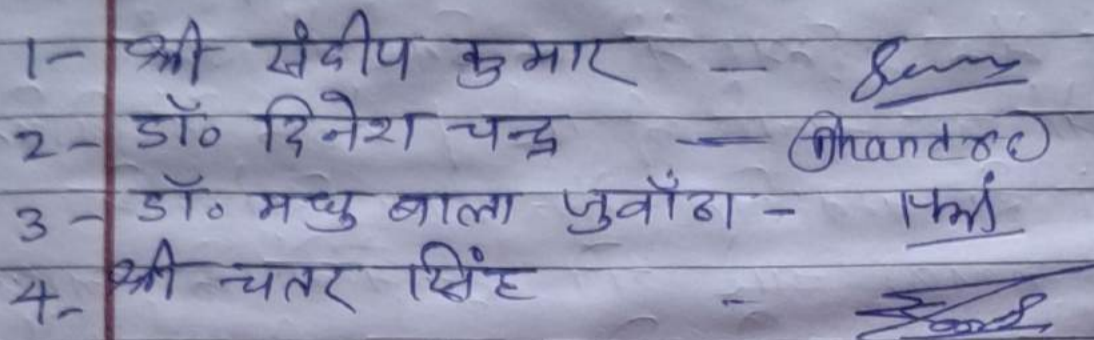 1- श्री संदीप कुमार -
2- डॉ० दिनेश चन्द्र - Dhandre
3- डॉ० मधु बाला जुवाँठा -
4- श्री चतर सिंह -